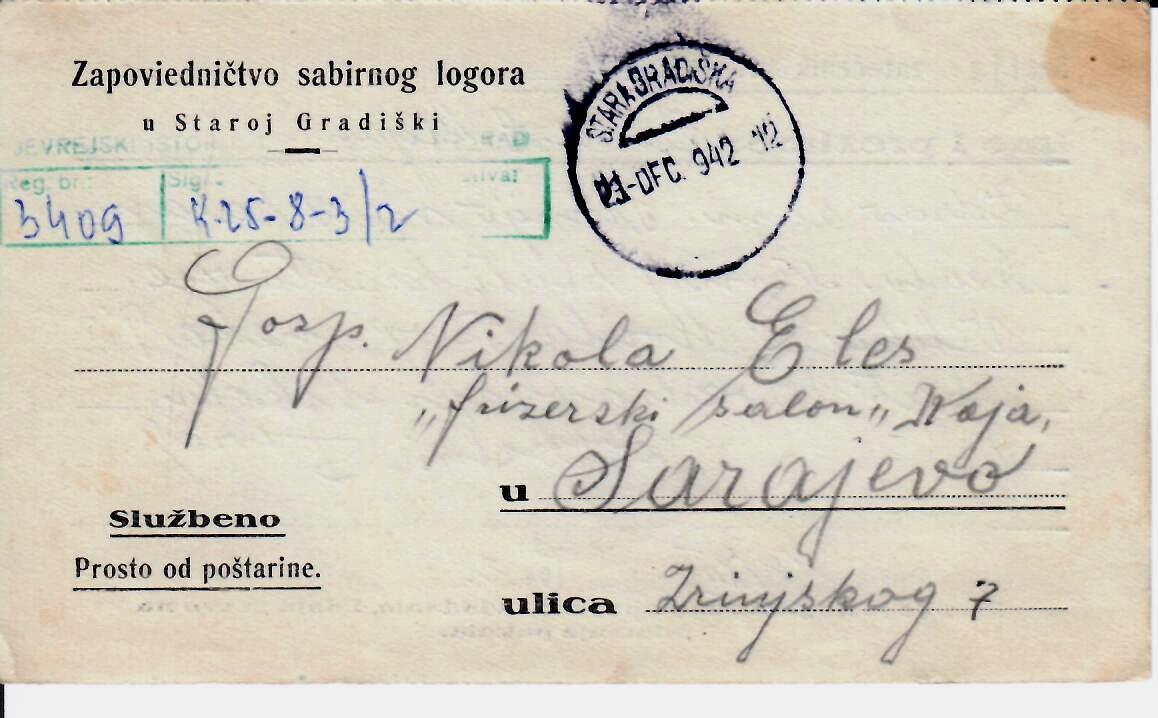 Zapoviedničtvo sabirnog logora
u Staroj Gradiški
STARA GRADIŠKA
-DEC. 942 12
JEVREJSKI ISTOR RAD
Reg. br.: Sig.
3409 K.25-8-3/2
Gosp. Nikola Eles
„frizerski salon„ Waja,
u Sarajevo
Službeno
Prosto od poštarine.
ulica Zrinjskog 7